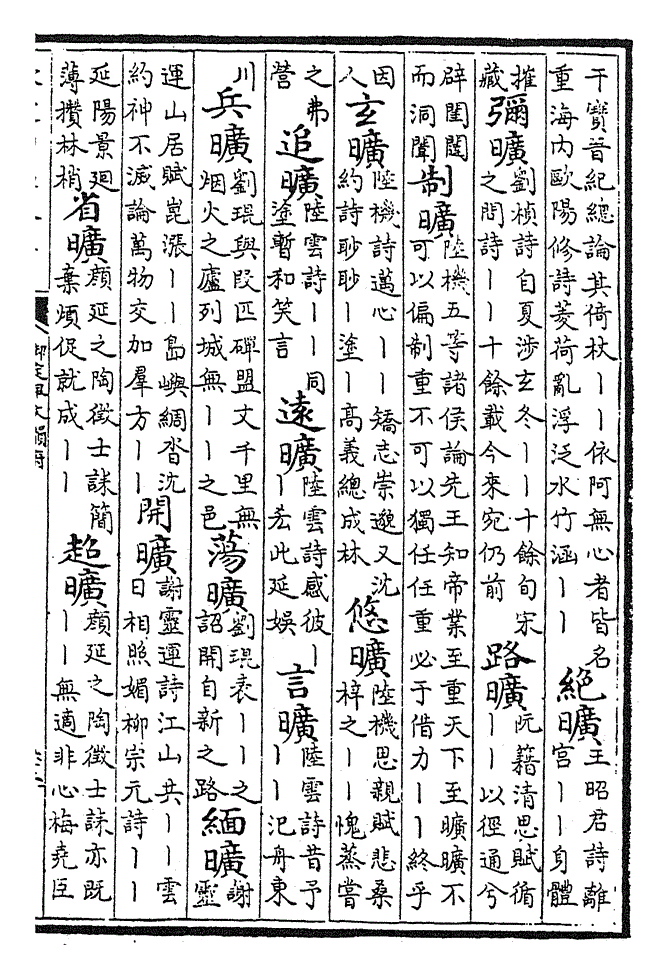 干寶晉紀總論其倚杖丨丨依阿無心者皆名
重海内歐陽修詩菱荷亂浮泛水竹涵丨丨
絕曠
王昭君詩離
宮丨丨身體
摧
藏
彌曠
劉楨詩自夏涉玄冬丨丨十餘旬宋
之問詩丨丨十餘載今來宛仍前
路曠
阮籍清思賦循
丨丨以徑通兮
辟閨闥
而洞聞
制曠
陸機五等諸侯論先王知帝業至重天下至曠曠不
可以偏制重不可以獨任任重必于借力丨丨終乎
因
人
玄曠
陸機詩邁心丨丨矯志崇邈又沈
約詩眇眇丨塗丨高義總成林
悠曠
陸機思親賦悲桑
梓之丨丨愧蒸嘗
之弗
營
追曠
陸雲詩丨丨同
塗暫和笑言
遠曠
陸雲詩感彼丨
丨若此延娛
言曠
陸雲詩昔予
丨丨汜舟東
川
兵曠
劉琨與段匹磾盟文千里無
烟火之廬列城無丨丨之邑
蕩曠
劉琨表丨丨之
詔開自新之路
緬曠
謝
靈
運山居賦崑漲丨丨島嶼綢沓沈
約神不滅論萬物交加羣方丨丨
開曠
謝靈運詩江山共丨丨雲
日相照媚柳宗元詩丨丨
延陽景廻
薄攢林梢
省曠
顏延之陶徵士誄簡
棄煩促就成丨丨
超曠
顏延之陶徵士誄亦既
丨丨無適非心梅堯臣